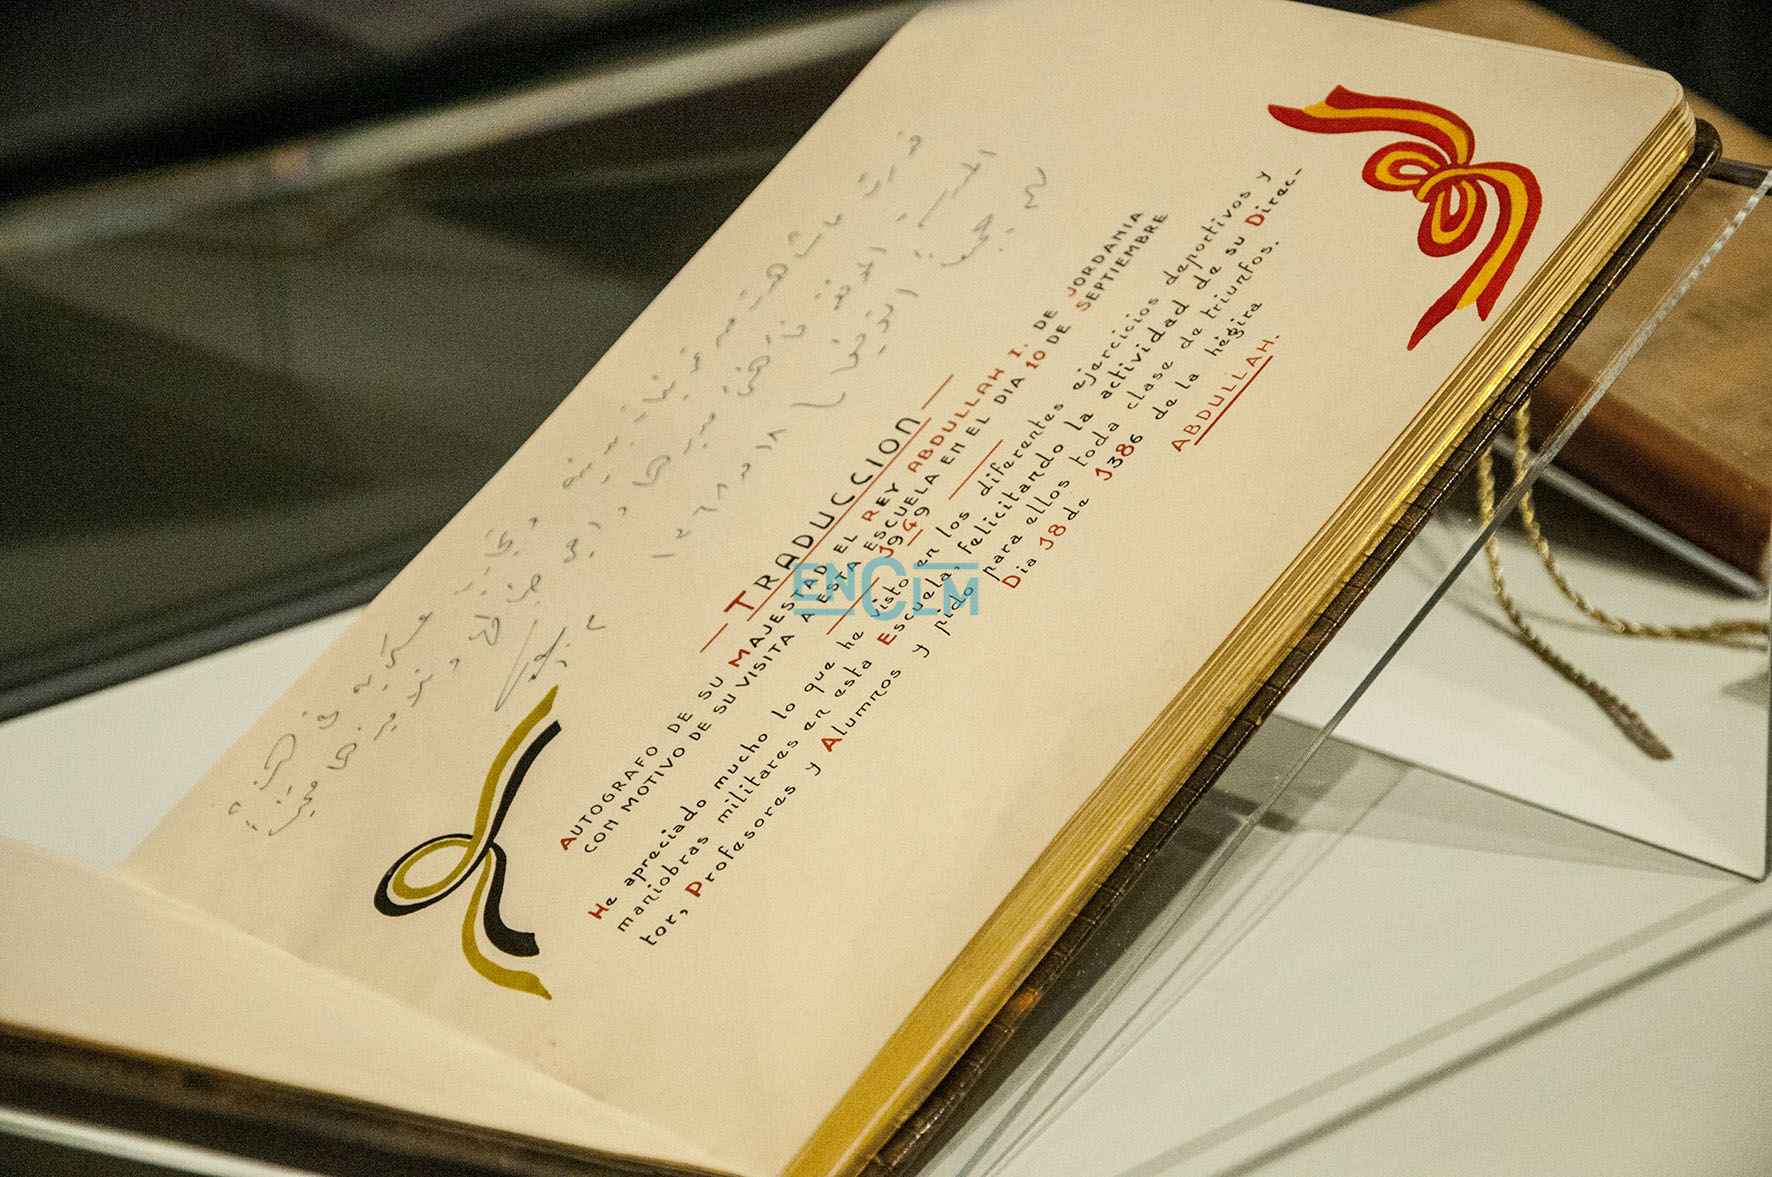 ما شاهدت من تمرينات بدنية عسكرية في هذه
المدرسة الموفقة مديرها
لهم جميعا التوفيق
TRADUCCION
AUTOGRAFO DE SU MAJESTAD EL REY ABDULLAH I. DE JORDANIA
CON MOTIVO DE SU VISITA A ESTA ESCUELA EN EL DIA 10 DE SEPTIEMBRE
1949
He apreciado mucho lo que he visto en los diferentes ejercicios deportivos y
maniobras militares en esta Escuela, felicitando la actividad de su Direc-
tor, Profesores y Alumnos y pido para ellos toda clase de triunfos.
Dia 18 de 1386 de la hégira
ABDULLAH.
ENCLM